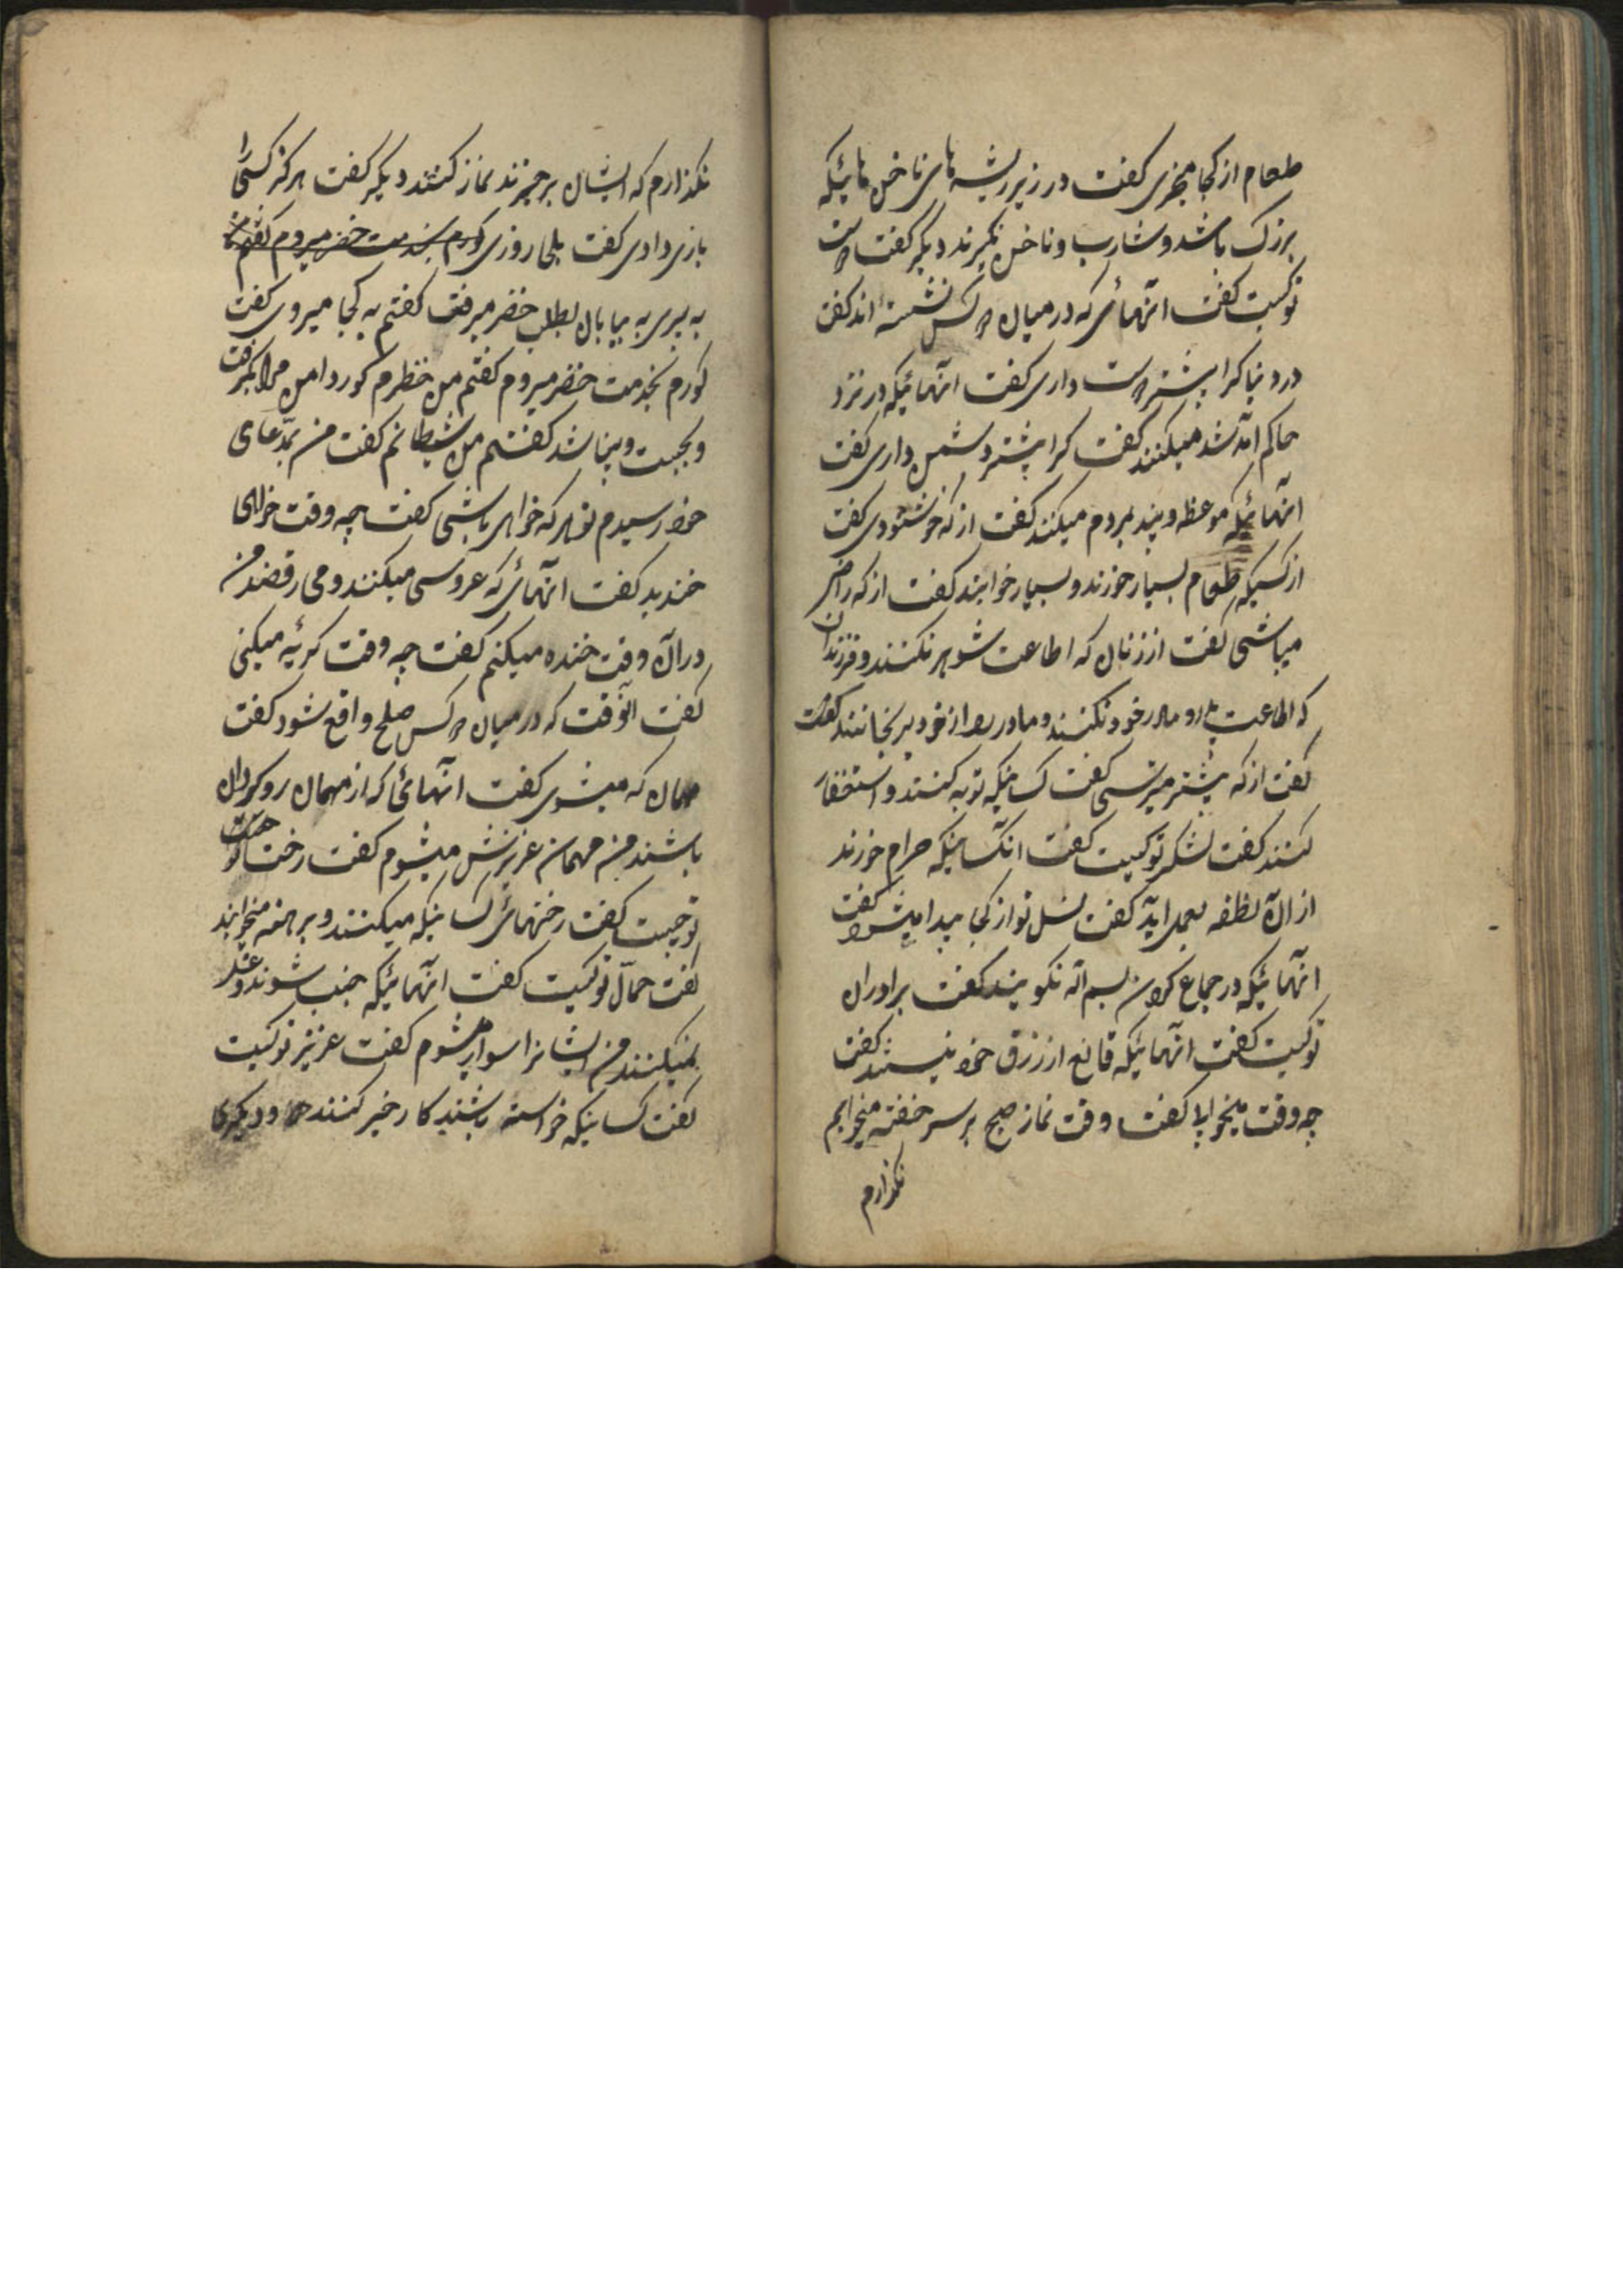 طعام از کجا میخوری گفت در زیر ریشه های ناخن هائیکه
بزرک باشد و شارب و ناخن نکیرند دیکر گفت دوست
تو کیست گفت انهائی که در میان دو کس نشسته اند گفت
در دنیا کرا بیشتر دوست داری گفت انهائیکه در نزد
حاکم آمد شد میکنند گفت کرا بیشتر دشمن داری گفت
انهائیکه موعظه و پند بمردم میکنند گفت از که خوشنودی گفت
از کسیکه طعام بسیار خورند و بسیار خوابند گفت از که راضی
میباشی گفت از زنان که اطاعت شوهر نکنند و فرزندان
که اطاعت پدر و مادر خود نکنند و مادر را از خود برنجانند گفت
گفت از که بیشتر میترسی گفت کسانیکه توبه کنند و استغفار
کنند گفت لشکر تو کیست گفت انکسانیکه حرام خورند
از ان نطفه بعمل اید گفت نسل تو از کجا پیدا میشود گفت
انهائیکه در جماع کردن بسم الله نکویند گفت برادران
تو کیست گفت انهائیکه قانع از رزق خود نیستند گفت
چه وقت میخوابی گفت وقت نماز صبح بر سر خفته میخوابم
نکذارم
نکذارم که ایشان برخیزند نماز کنند دیکر گفت هرکز کسی را
بازی دادی گفت بلی روزی کورم بخدمت خضر میروم گفتم من
به پیری به بیابان بطلب خضر میرفت گفتم به کجا میروی گفت
کورم بخدمت خضر میروم گفتم من خظرم کور دامن مرا بکرفت
و بجست و بینا شد گفتم من شیطانم گفت من بمدعای
خود رسیدم تو هر که خواهی باشی گفت چه وقت خواهی
خندید گفت انهائی که عروسی میکنند و می رقصند من
در ان وقت خنده میکنم گفت چه وقت کریه میکنی
گفت انوقت که در میان دو کس صلح واقع شود گفت
مهمان که میشوی گفت انهائی که از مهمان رو کردان
باشند من مهمان عزیزش میشوم گفت رخت
تو چیست گفت رختهای کسانیکه میکنند و برهنه میخوابند
گفت حمال تو کیست گفت انهائیکه جنب شوند و غسل
نمیکنند من ایشانرا سوار میشوم گفت عزیز تو کیست
گفت کسانیکه خواسته باشند کار خیر کنند و دیکری